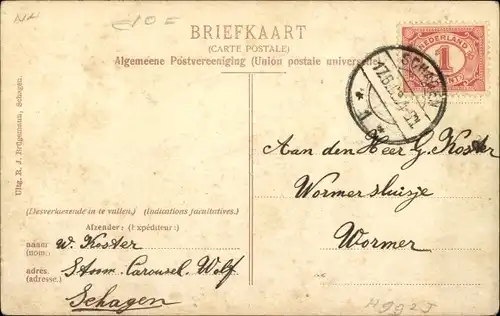 BRIEFKAART
(CARTE POSTALE)
Algemeene Postvereeniging (Union postale universelle)
NEDERLAND
1
CENT
SCHAGEN
1
Uitg. R. J. Brügemann, Schagen.
Aan den Heer G. Koster
Wormersluisje
Wormer
(Desverkiezende in te vullen.) (Indications facultatives.)
Afzender: (Expéditeur:)
naam W. Koster
(nom.)
adres. Stoom. Carousel. Wolf
(adresse.) Schagen